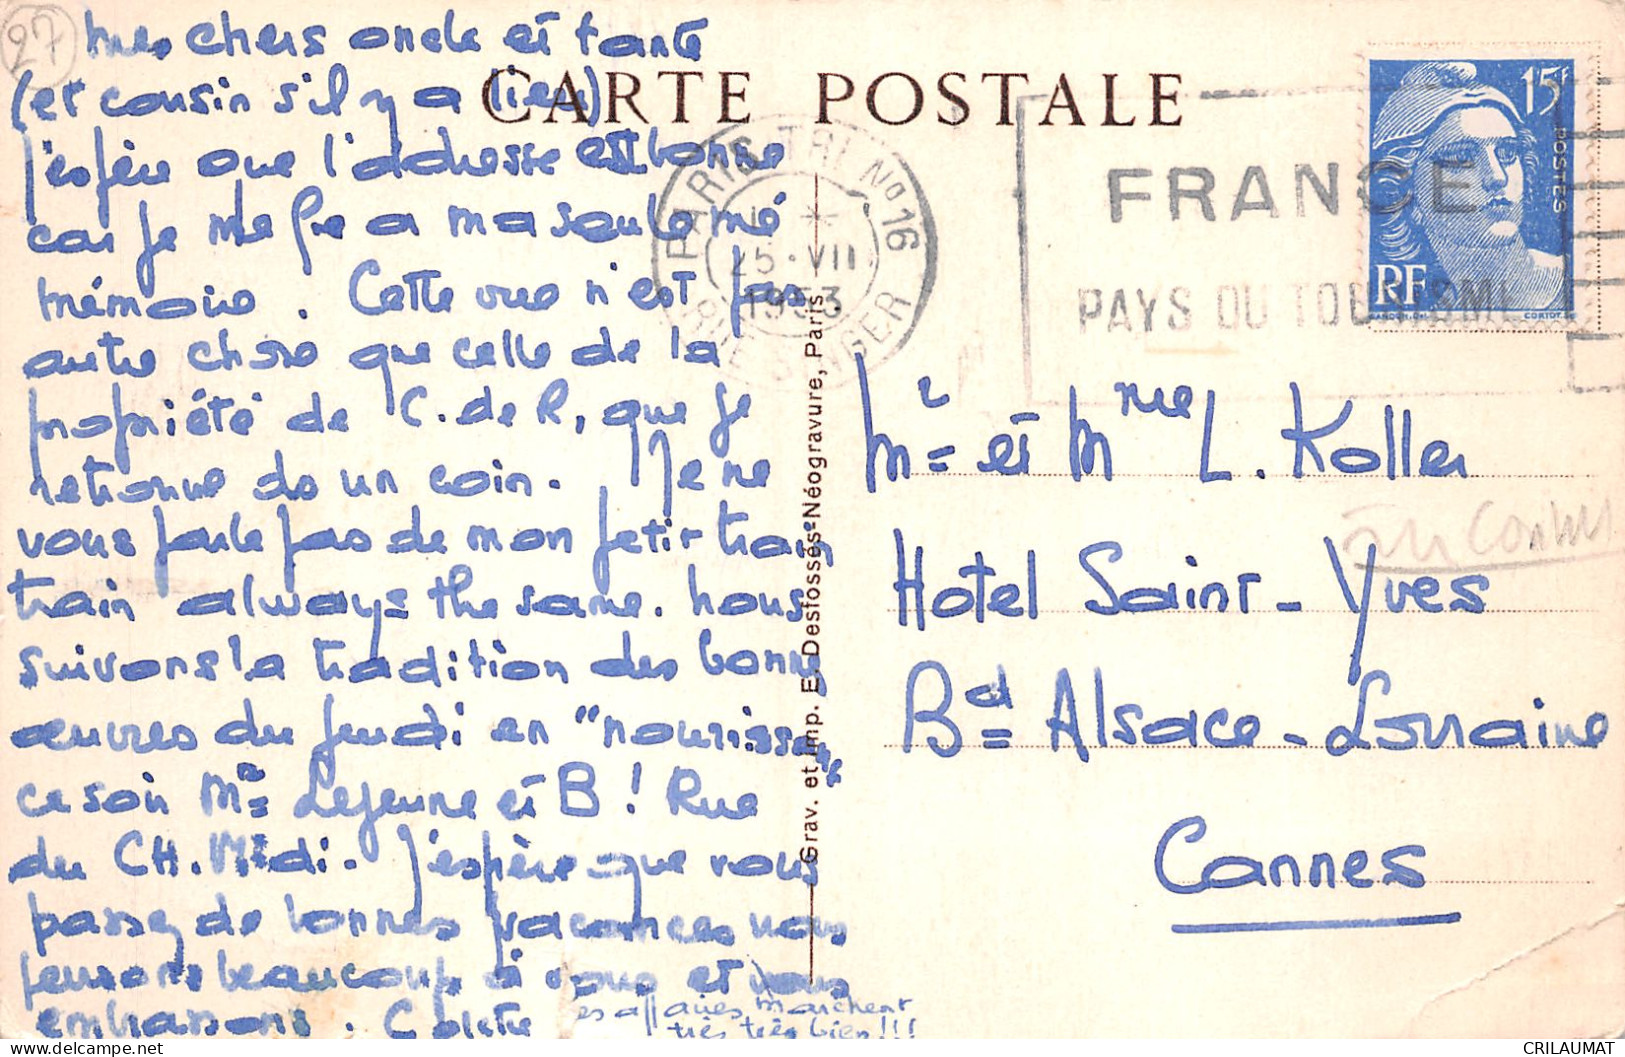 27
mes chers oncle et tante
(et cousin s'il y a lieu)
j'espère que l'adresse est bonne
car je me fie à ma seule mé
mémoire. Cette vue n'est pas
autre chose que celle de la
propriété de C. de R, que je
retrouve de un coin. Je ne
vous parle pas de mon petit train
train always the same. nous
suivons la tradition des bonnes
œuvres du jeudi en "nourissant"
ce soir Mr Lejeune et B! Rue
du CH. Midi. J'espère que vous
passez de bonnes vacances nous
pensons beaucoup à vous et vous
embrassons. Colette
les affaires marchent
très très bien!!!
CARTE POSTALE
PARIS TRI No 16
25 · VII
1953
RUE SINGER
FRANCE
PAYS DU TOURISME
15f
POSTES
RF
GANDON. DEL.
CORTOT. SC
Grav. et Imp. E. Desfossés-Néogravure, Paris.
Mr et Mme L. Koller
Hotel Saint-Yves
Bd Alsace-Lorraine
Cannes
CRILAUMAT